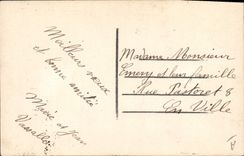 Meilleurs vœux
et bonne amitié
Marie et Jean
Madame Monsieur
Emery et leur famille
Rue Pastoret 8
En Ville